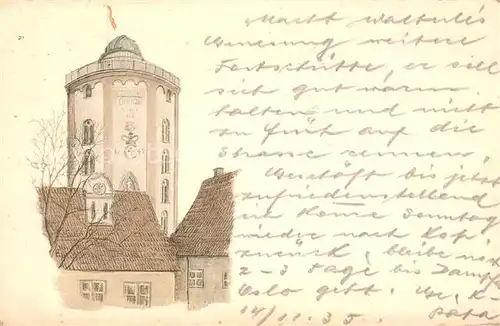 Macht Walterle's
Genesung weitere
Fortschritte, er soll
sich gut warm
halten und nicht
zu früh auf die
Strasse rennen.
Geschäft bis jetzt
zufriedenstellend
Komme Sonntag
wieder nach Kop/
zurück, bleibe
2-3 Tage bis Dampf
Oslo geht.
14/11.35. Papa